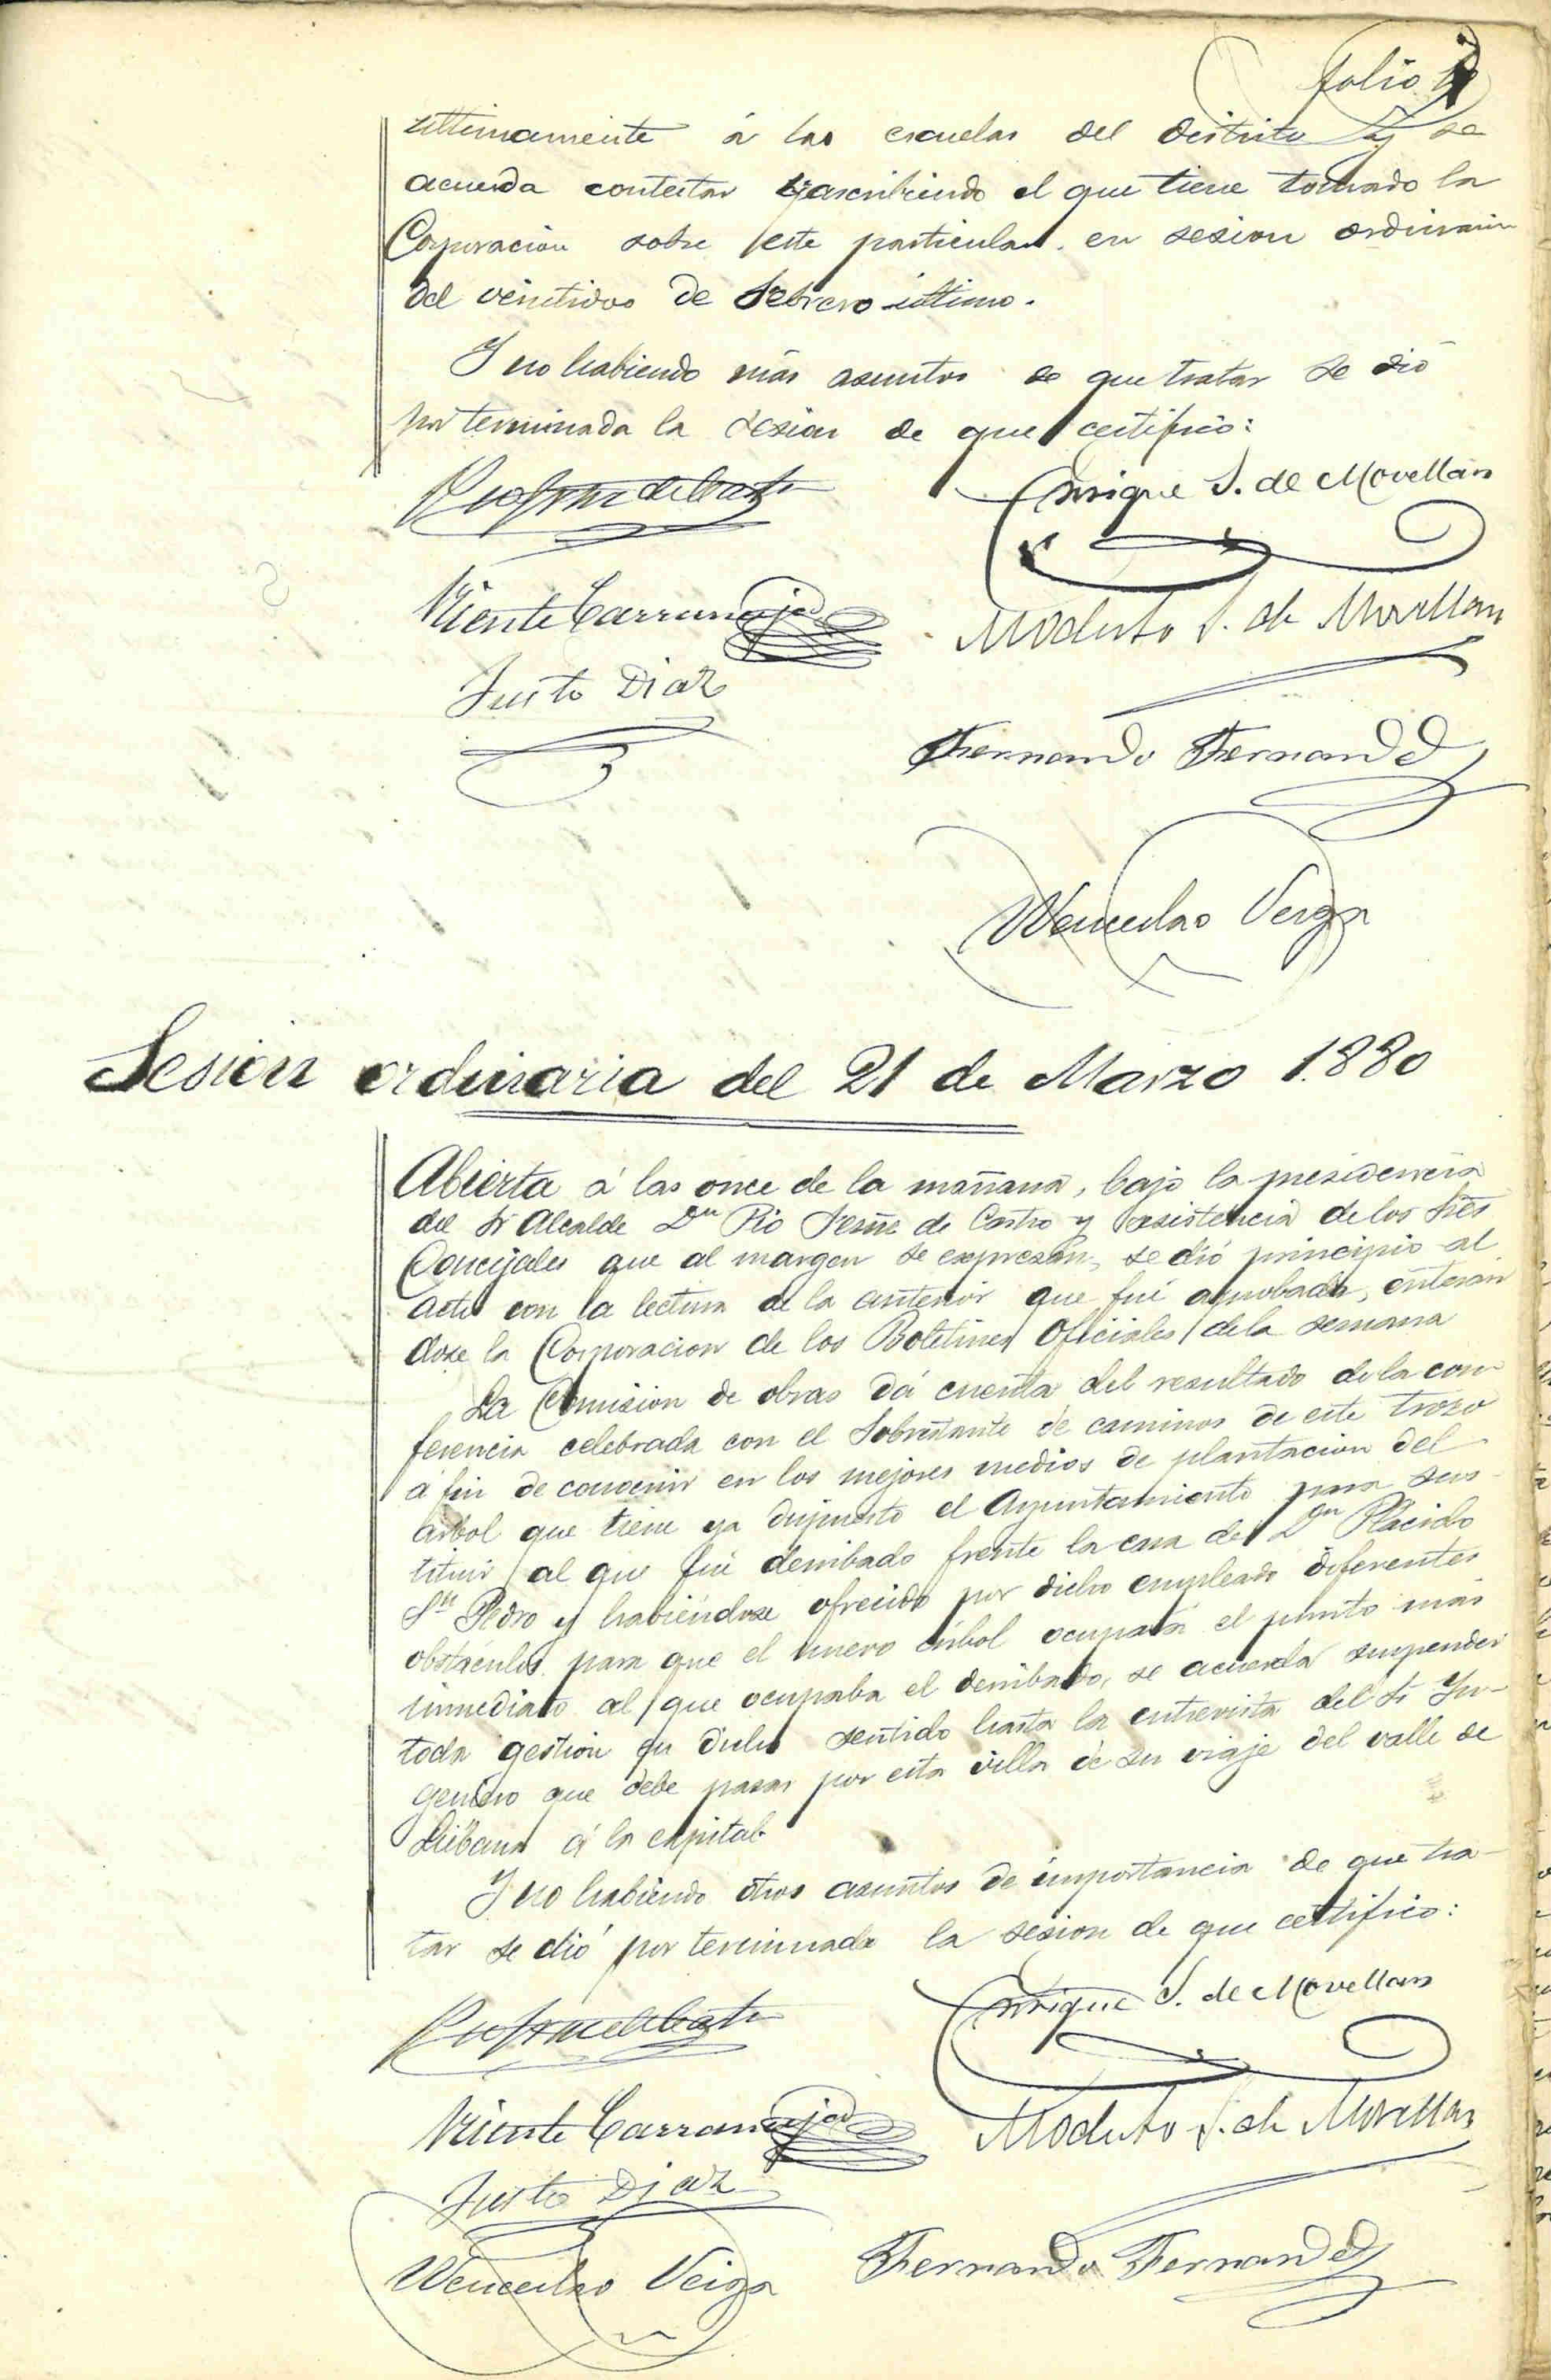 folio
ultimamente á las escuelas del distrito y se
acuerda contestar trascribiendo el que tiene tomado la
Corporacion sobre este particular en sesion ordinaria
del veintidos de Febrero último.
Y no habiendo más asuntos de que tratar se dió
por terminada la sesion de que certifico:
Enrique S. de Movellan
Vicente Carranceja
Modesto S. de Movellan
Justo Diaz
Fernando Fernandez
Wenceslao Veiga
Sesion ordinaria del 21 de Marzo 1.880
Abierta á las once de la mañana, bajo la presidencia
del Sr Alcalde Dn Pio de Castro y asistencia de los Sres
Concejales que al margen se expresan, se dió principio al
acto con la lectura de la anterior que fué aprobada, enteran
dose la Corporacion de los Boletines Oficiales de la semana
La Comision de obras dá cuenta del resultado de la con-
ferencia celebrada con el Sobrestante de caminos de este trozo
á fin de convenir en los mejores medios de plantacion del
arbol que tiene ya dispuesto el Ayuntamiento para sus-
tituir al que fué derribado frente la casa de Dn Plácido
Sn Pedro y habiéndose ofrecido por dicho empleado diferentes
obstáculos para que el nuevo árbol ocupara el punto más
inmediato al que ocupaba el derribado, se acuerda suspender
toda gestion en dicho sentido hasta la entrevista del Sr Yn-
geniero que debe pasar por esta villa de su viaje del valle de
Liébana á la capital.
Y no habiendo otros asuntos de importancia de que tra-
tar se dió por terminada la sesion de que certifico:
Enrique S. de Movellan
Vicente Carranceja
Modesto S. de Movellan
Justo Diaz
Wenceslao Veiga
Fernando Fernandez